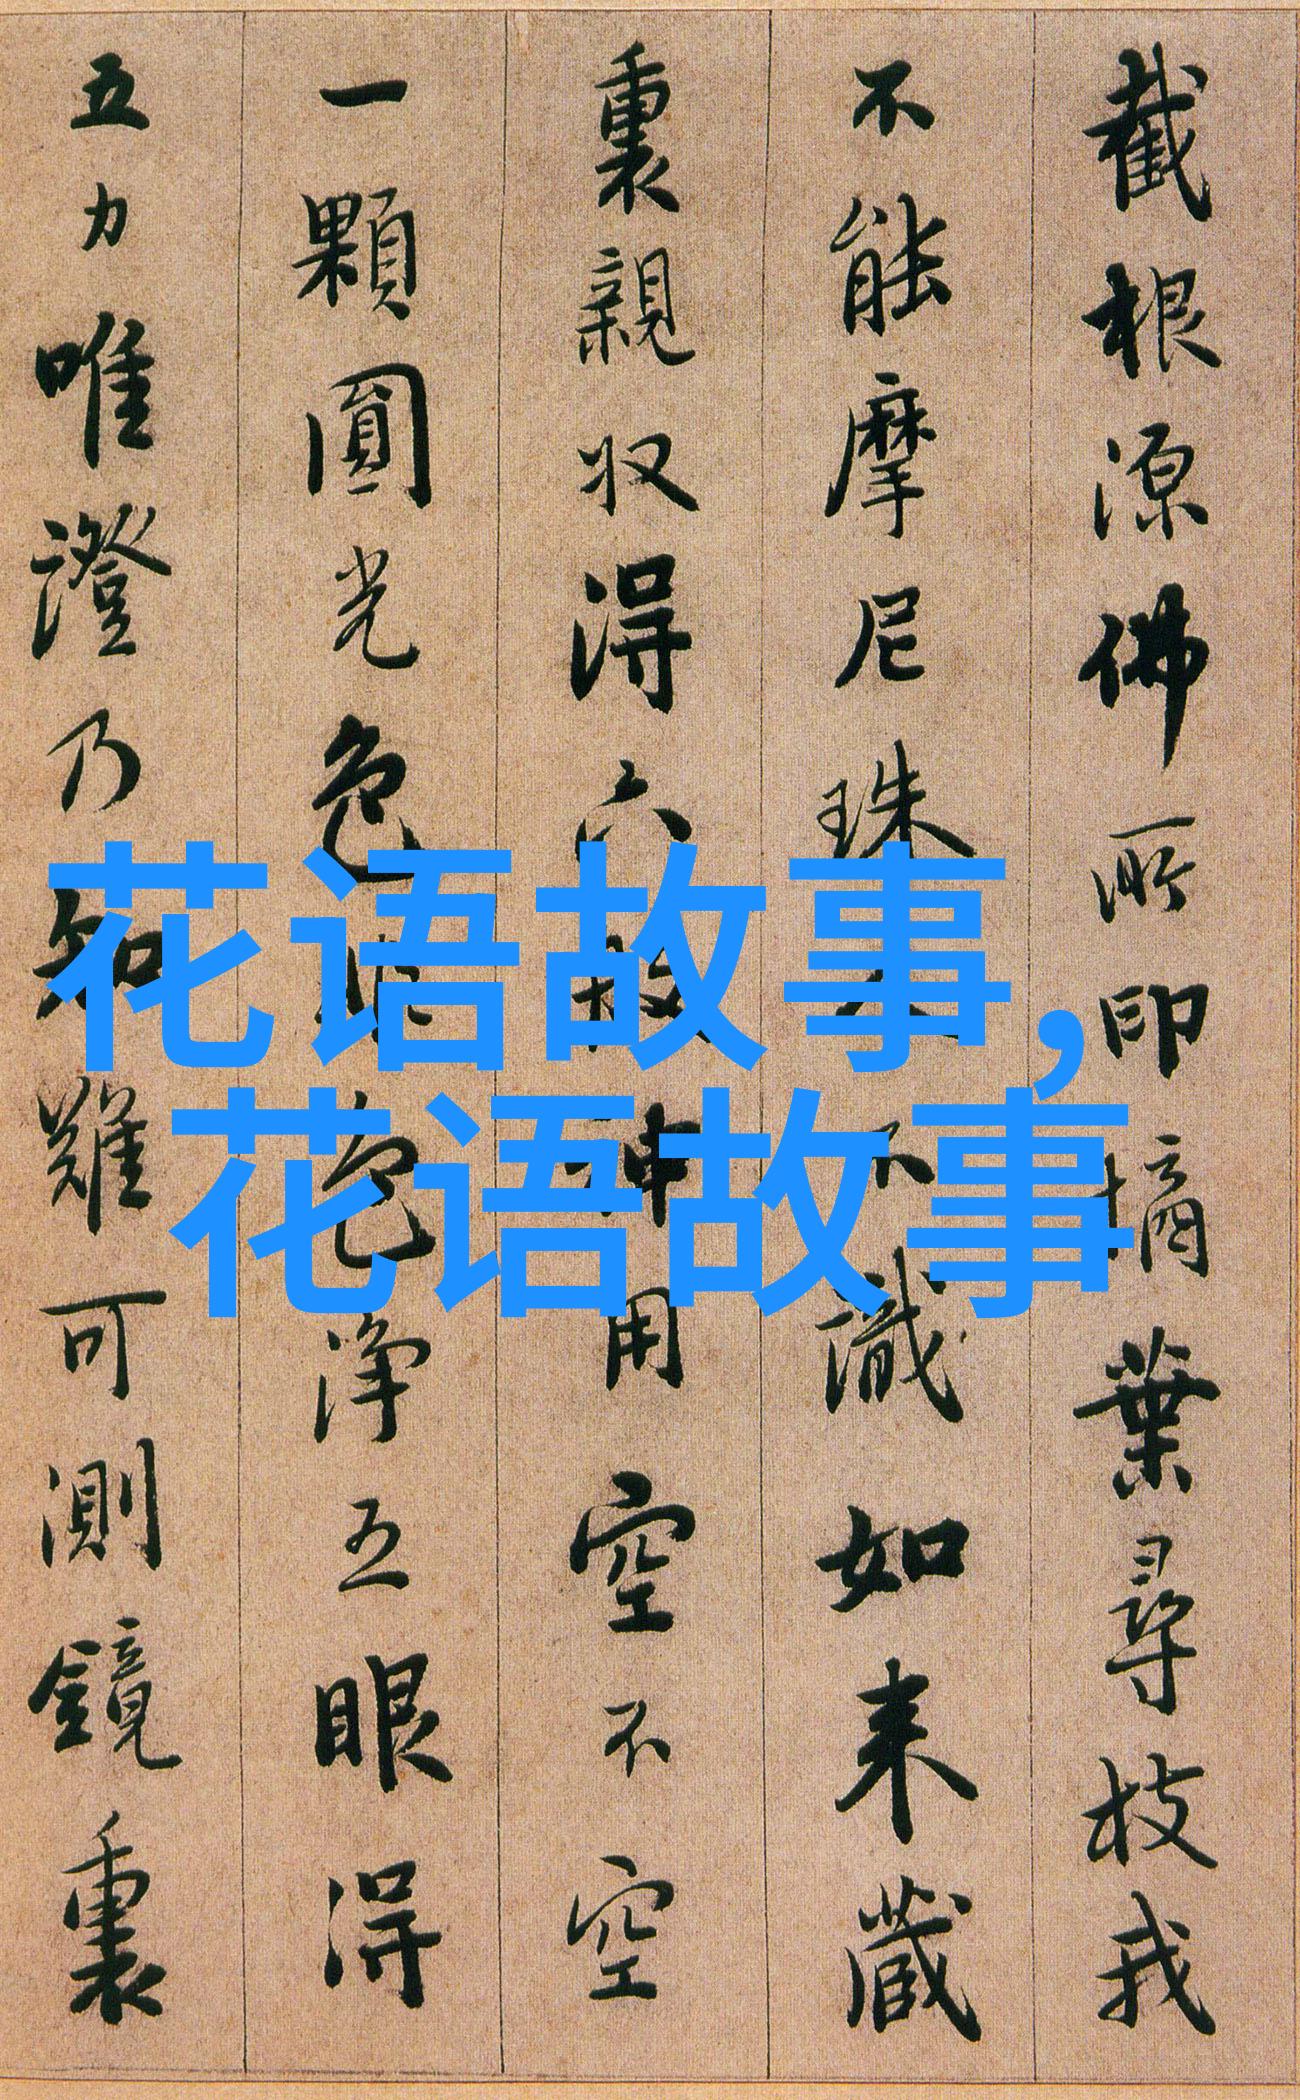 截根源佛所印摘葉尋枝我
不能摩尼珠人不識如来藏
裏親収得六般神用空不空
一顆圓光色非色淨五眼得
五力唯證乃知難可測鏡裏
花语故事,
花语故事